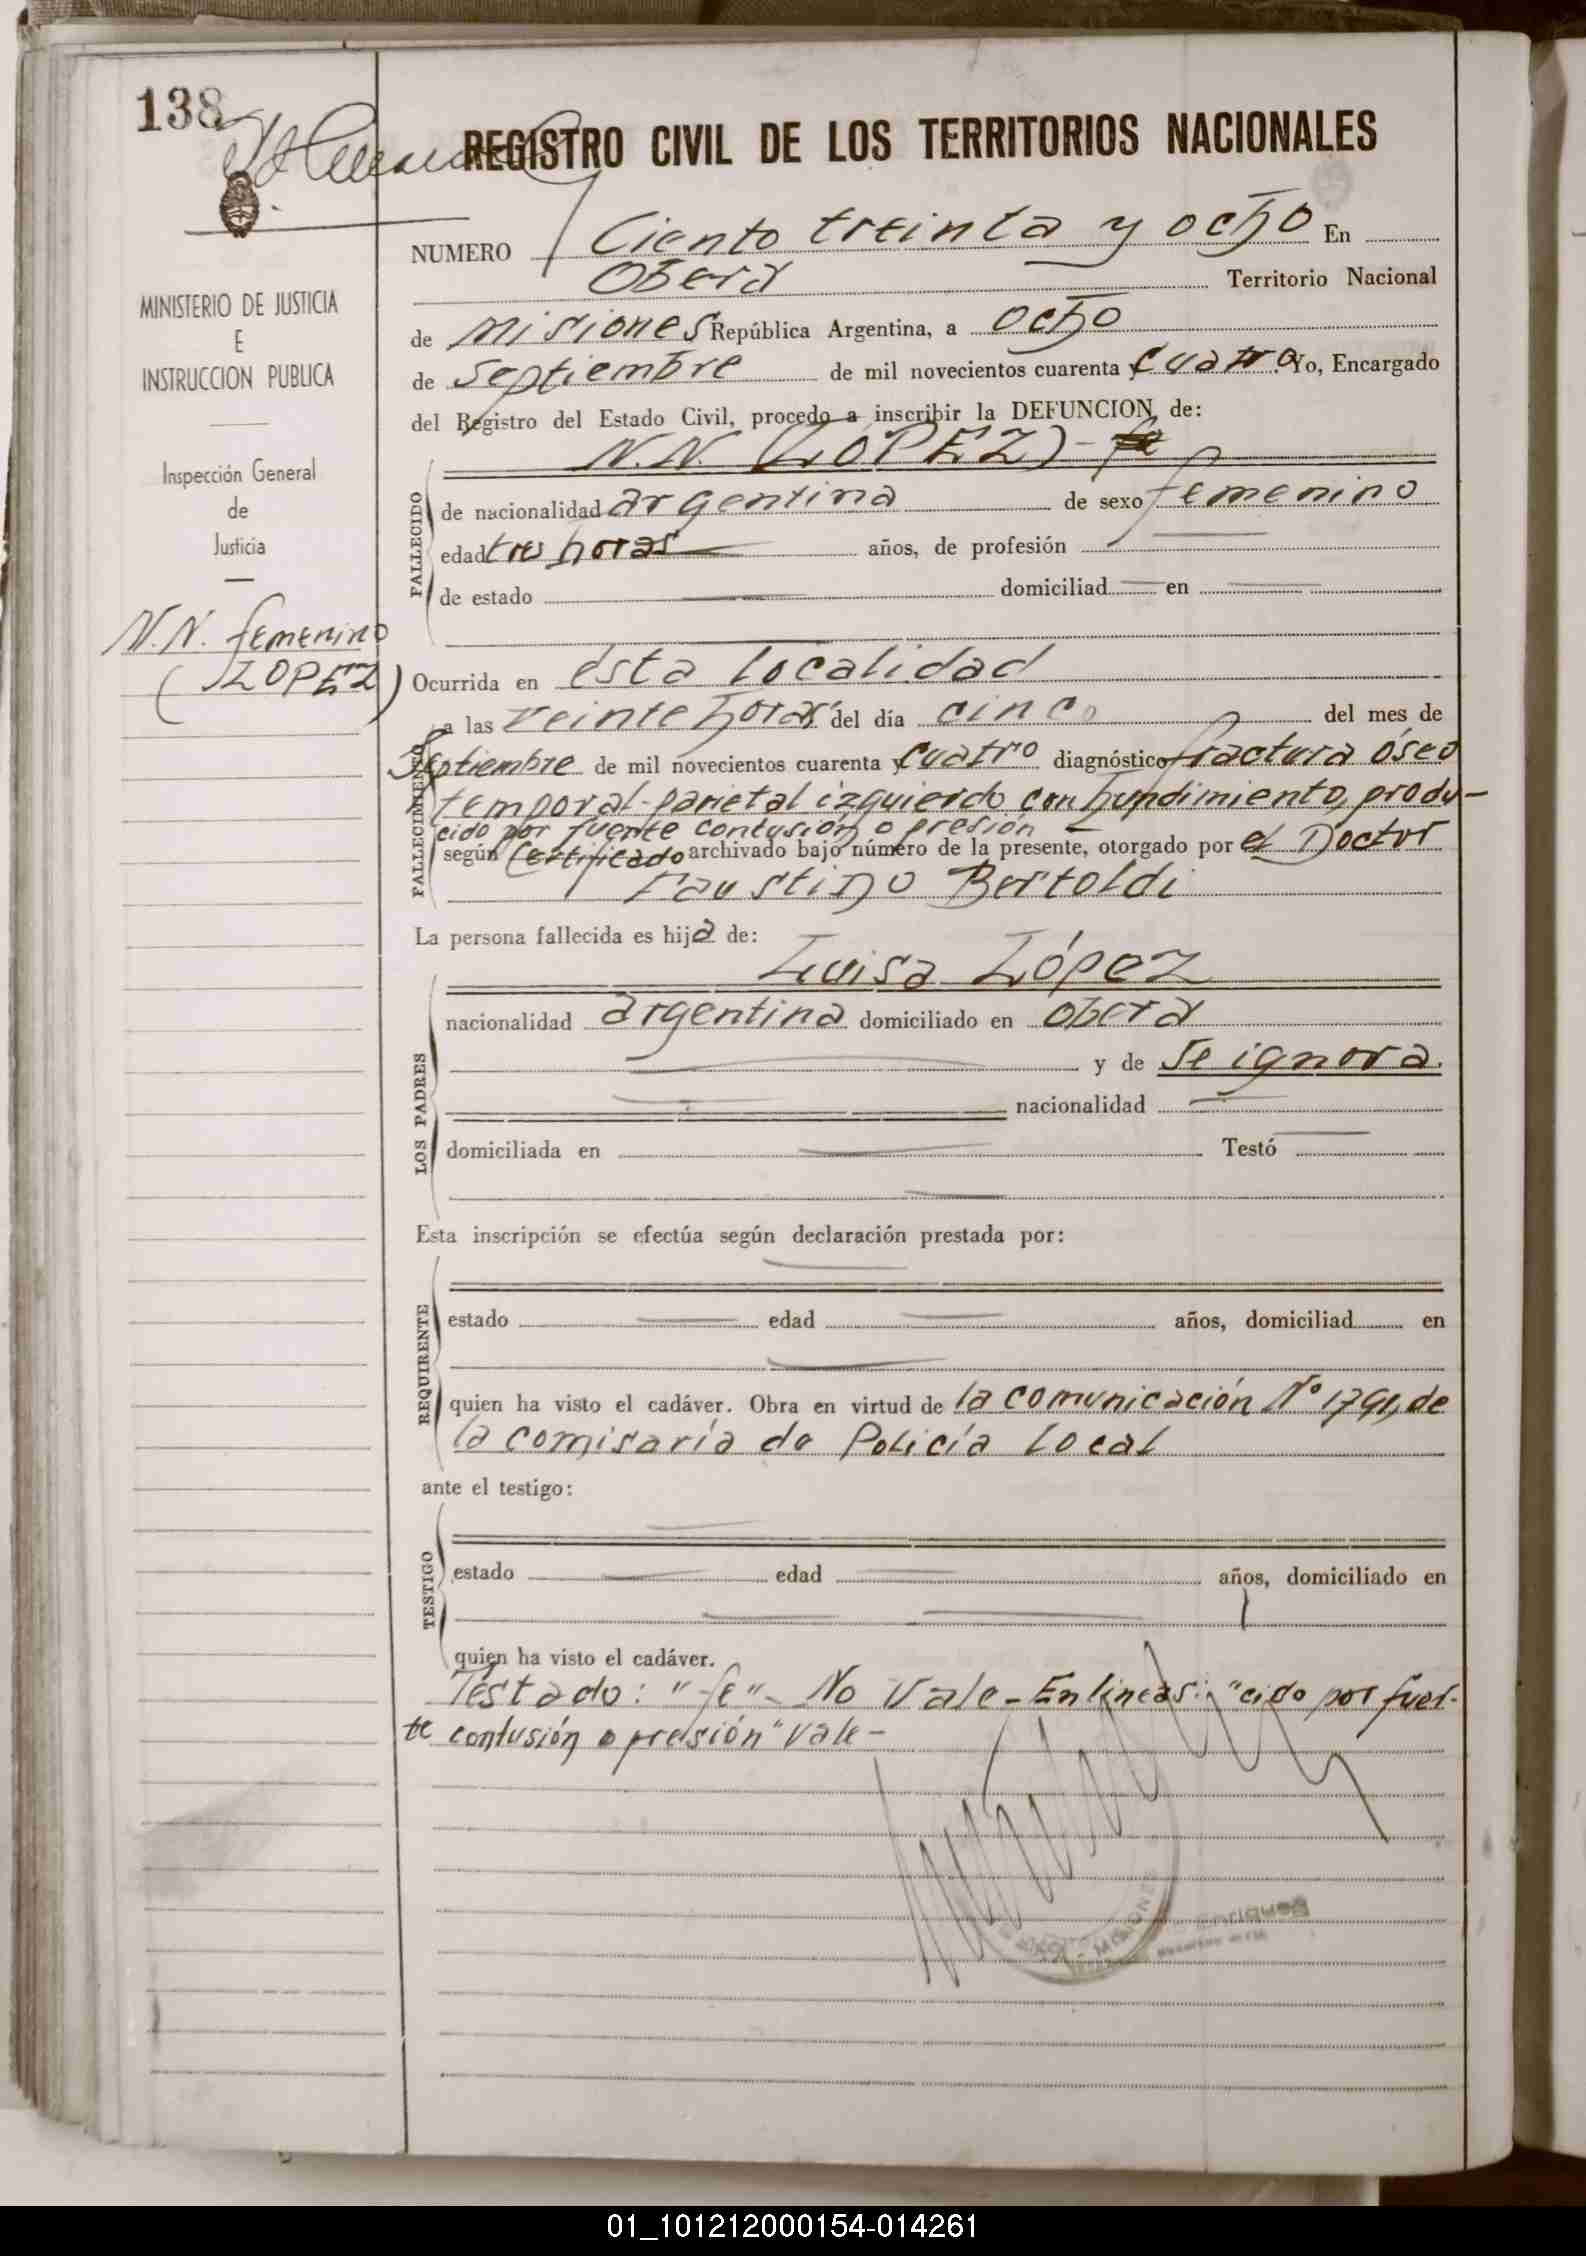 138
REGISTRO CIVIL DE LOS TERRITORIOS NACIONALES
MINISTERIO DE JUSTICIA
E
INSTRUCCION PUBLICA
Inspección General
de
Justicia
N.N. femenino
(LOPEZ)
NUMERO Ciento treinta y ocho En
Oberá Territorio Nacional
de Misiones República Argentina, a ocho
de Septiembre de mil novecientos cuarenta y cuatro. Yo, Encargado
del Registro del Estado Civil, procedo a inscribir la DEFUNCION de:
N.N. (LOPEZ)- fe
FALLECIDO
de nacionalidad argentina de sexo femenino
edad tres horas años, de profesión
de estado domiciliad en
FALLECIMIENTO
Ocurrida en esta localidad
a las veinte horas del día cinco del mes de
Septiembre de mil novecientos cuarenta y cuatro diagnóstico fractura óseo
temporal-parietal izquierdo con hundimiento, produ-
cido por fuerte contusión o presión
según certificado archivado bajo número de la presente, otorgado por el Doctor
Faustino Bertoldi
La persona fallecida es hija de:
LOS PADRES
Luisa López
nacionalidad argentina domiciliado en Oberá
y de Se ignora.
nacionalidad
domiciliada en Testó
Esta inscripción se efectúa según declaración prestada por:
REQUIRENTE
estado edad años, domiciliad en
quien ha visto el cadáver. Obra en virtud de la comunicación Nº 1791, de
la comisaría de Policía local
ante el testigo:
TESTIGO
estado edad años, domiciliado en
quien ha visto el cadáver.
Testado: "fe"- No Vale- Enlíneas: "cido por fuer-
te contusión o presión" vale-
MISIONES
01_101212000154-014261